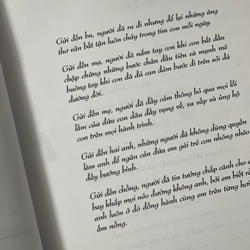 Gửi đến ba, người đã ra đi nhưng để lại những áng
thơ văn bất tận luôn chảy trong tim con mỗi ngày.
Gửi đến mẹ, người đã nắm tay con khi con bắt đầu
chập chững những bước chân đầu tiên và mạnh mẽ
buông tay khi con đã đủ can đảm bước đi trên sỏi đá
đường đời.
Gửi đến mẹ, người đã đầy cảm thông bỏ qua mọi lỗi
lầm của đứa con dâu đầy vụng về, va vấp và ủng hộ
con trên mọi hành trình.
Gửi đến hai anh, những người đã không dùng quyền
làm anh để ngăn cản đứa em gái trẻ con những nhõng
đầy bướng bỉnh.
Gửi đến chồng, người đã tin tưởng chắp cánh cho em
bay khắp mọi nẻo đường không anh, bởi em biết rằng
anh luôn ở đó đồng hành cùng em trên từng hơi
ấm nồng.